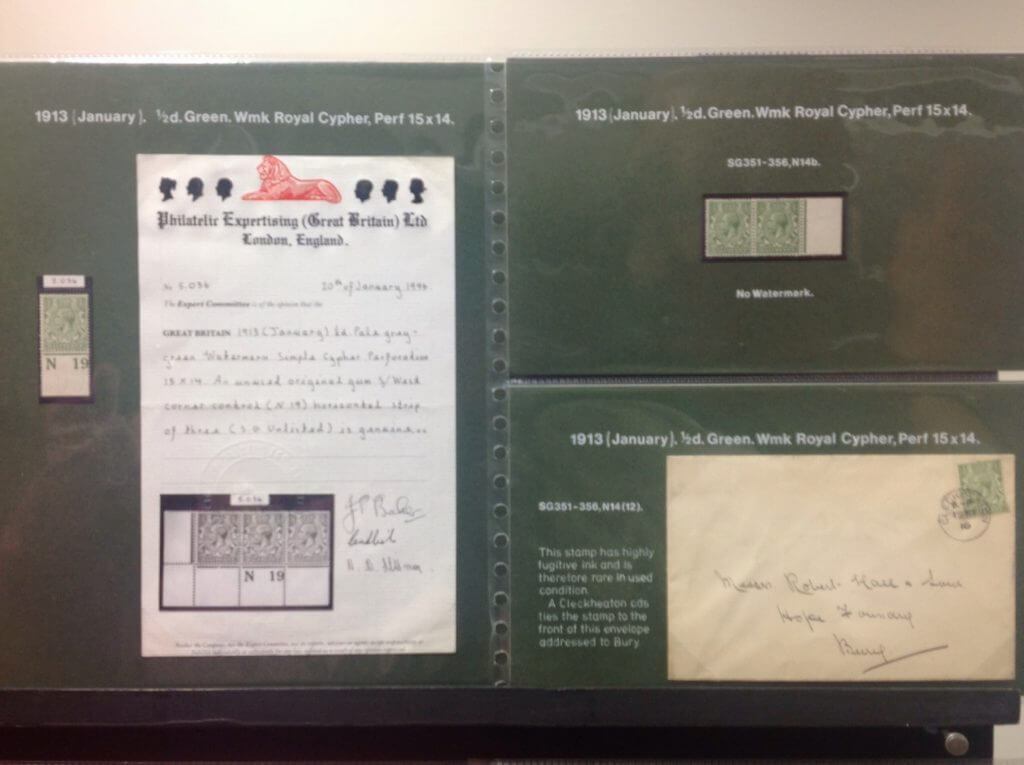 1913 (January). ½d. Green. Wmk Royal Cypher, Perf 15 x 14.
Philatelic Expertising (Great Britain) Ltd
London, England.
No 5.036 20th of January, 1996
The Expert Committee is of the opinion that the
GREAT BRITAIN 1913 (January) ½d Pale gray-
green Watermark Simple Cypher Perforation
15 x 14. An unused original gum S/West
corner control (N 19) horizontal strip
of three (S.G. Unlisted) is genuine.
5.036
N 19
5.036
N 19
1913 (January). ½d. Green. Wmk Royal Cypher, Perf 15 x 14.
SG351-356, N14b.
No Watermark.
1913 (January). ½d. Green. Wmk Royal Cypher, Perf 15 x 14.
SG351-356, N14(12).
This stamp has highly
fugitive ink and is
therefore rare in used
condition.
A Cleckheaton cds
ties the stamp to the
front of this envelope
addressed to Bury.
Messrs. Robert Hall & Sons
Hope Foundry
Bury